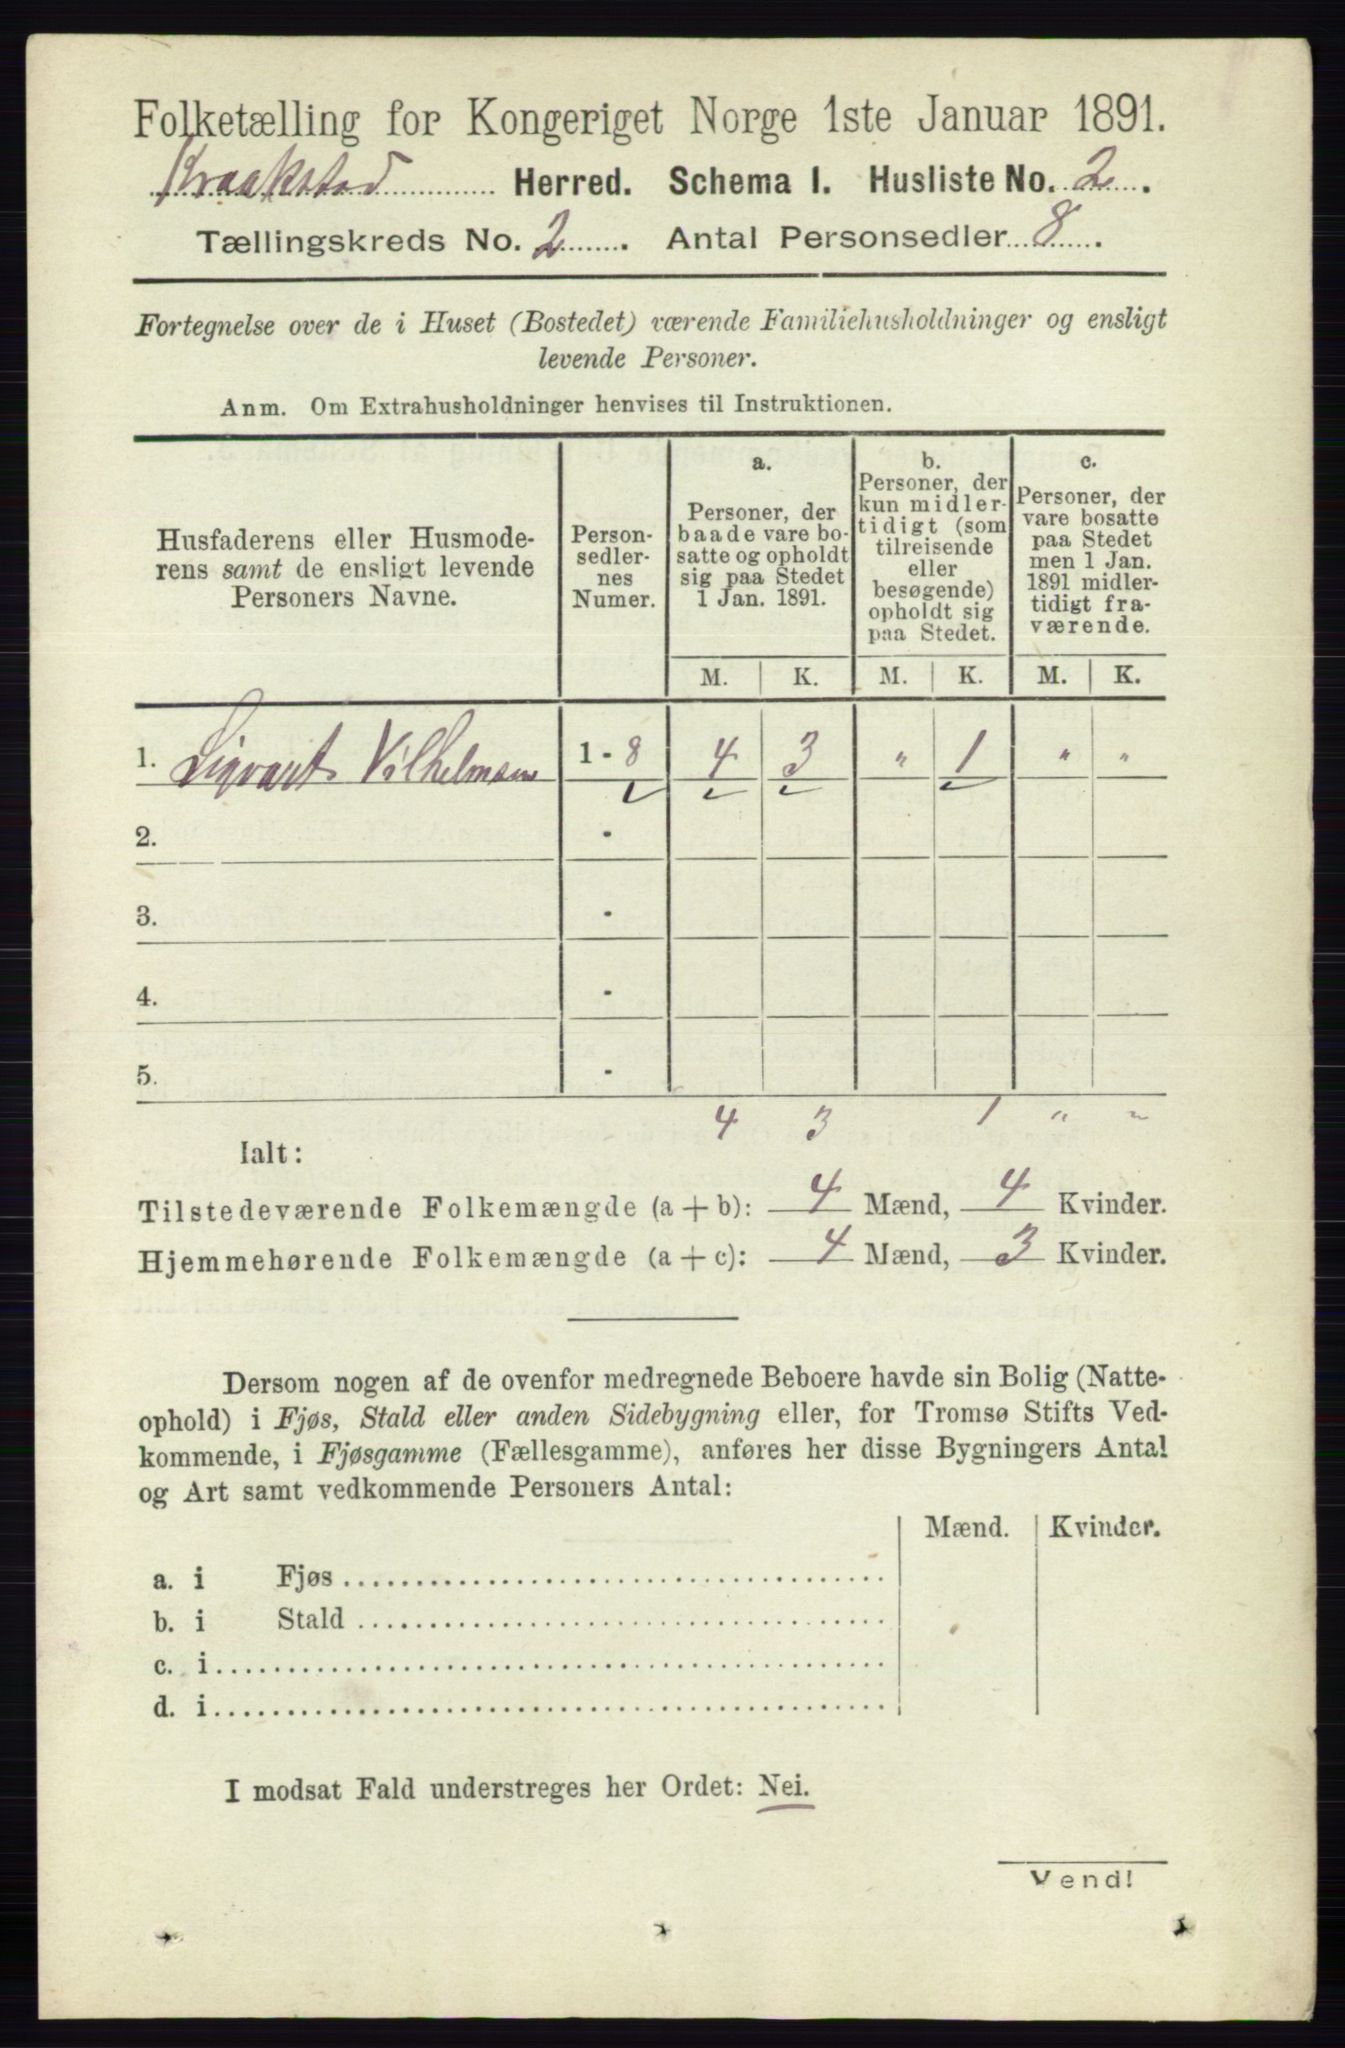 Folketælling for Kongeriget Norge 1ste Januar 1891.
Kraakstad Herred. Schema I. Husliste No. 2.
Tællingskreds No. 2. Antal Personsedler 8.
Fortegnelse over de i Huset (Bostedet) værende Familiehusholdninger og ensligt
levende Personer.
Anm. Om Extrahusholdninger henvises til Instruktionen.
Husfaderens eller Husmode-
rens samt de ensligt levende
Personers Navne.
Person-
sedler-
nes
Numer.
a.
Personer, der
baade vare bo-
satte og opholdt
sig paa Stedet
1 Jan. 1891.
b.
Personer, der
kun midler-
tidigt (som
tilreisende
eller
besøgende)
opholdt sig
paa Stedet.
c.
Personer, der
vare bosatte
paa Stedet
men 1 Jan.
1891 midler-
tidigt fra-
værende.
M. K. M. K. M. K.
1. Sigvart Vilhelmsen 1 - 8 4 3 " 1 " "
2. -
3. -
4. -
5. -
4 3 1 " "
Ialt:
Tilstedeværende Folkemængde (a + b): 4 Mænd, 4 Kvinder.
Hjemmehørende Folkemængde (a + c): 4 Mænd, 3 Kvinder.
Dersom nogen af de ovenfor medregnede Beboere havde sin Bolig (Natte-
ophold) i Fjøs, Stald eller anden Sidebygning eller, for Tromsø Stifts Ved-
kommende, i Fjøsgamme (Fællesgamme), anføres her disse Bygningers Antal
og Art samt vedkommende Personers Antal:
Mænd. Kvinder.
a. i Fjøs
b. i Stald
c. i
d. i
I modsat Fald understreges her Ordet: Nei.
Vend!